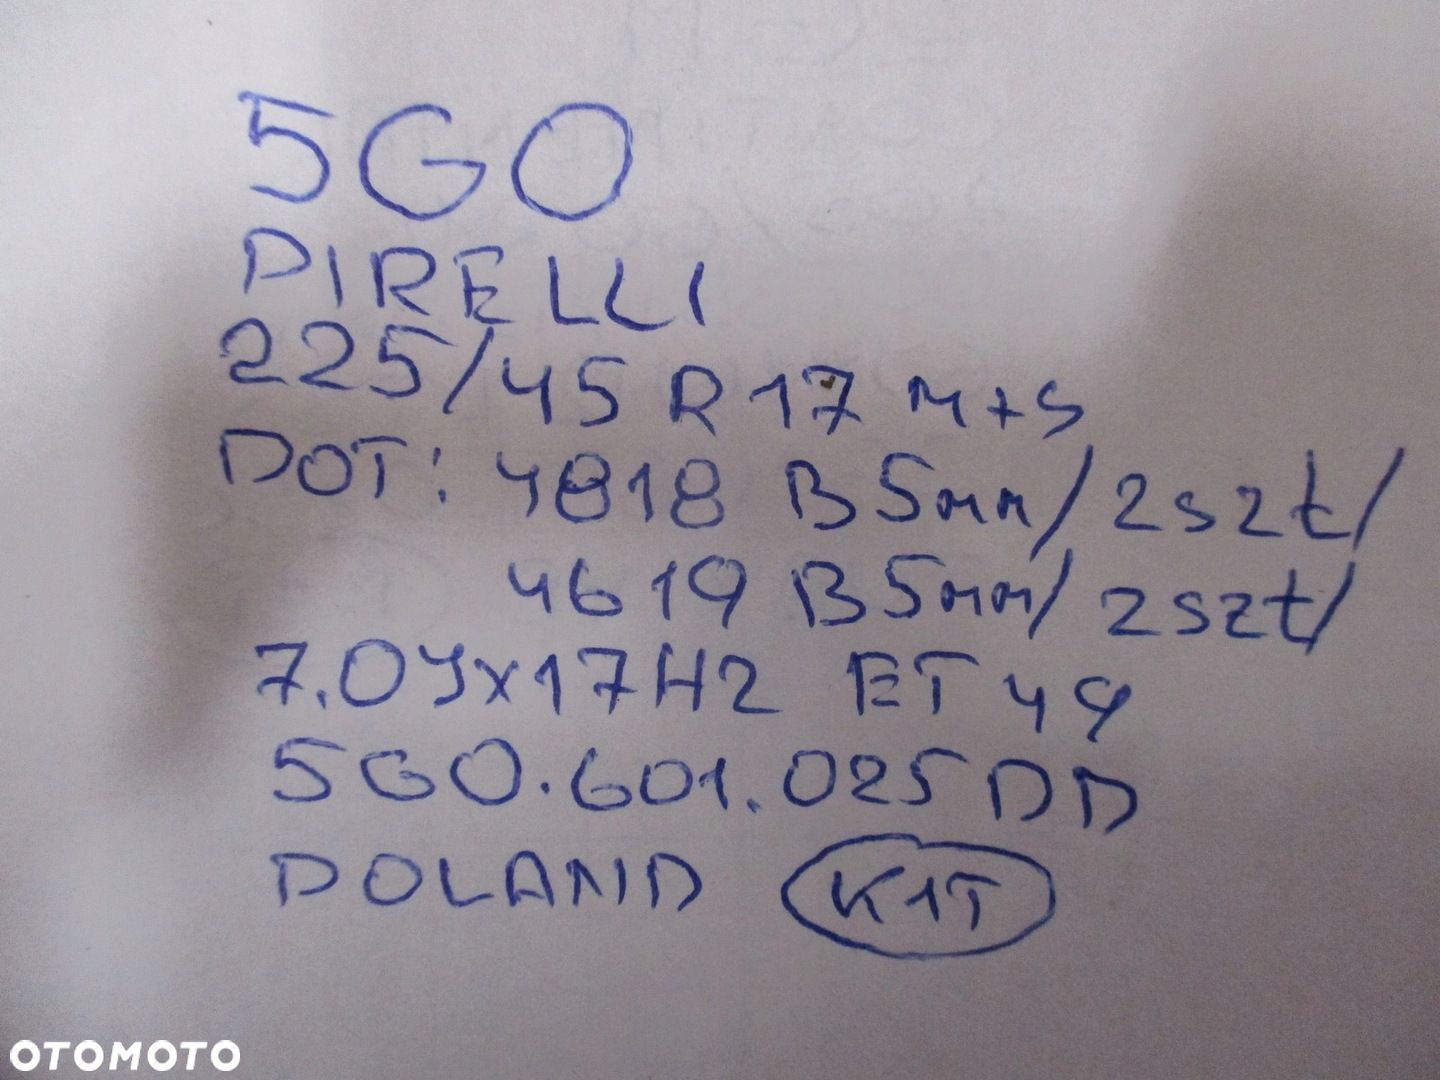 5GO
PIRELLI
225/45 R 17 M+S
DOT: 4818 B5mm/2szt/
4619 B5mm/2szt/
7.0Jx17H2 ET 49
5GO.601.025DD
POLAND K1T
OTOMOTO